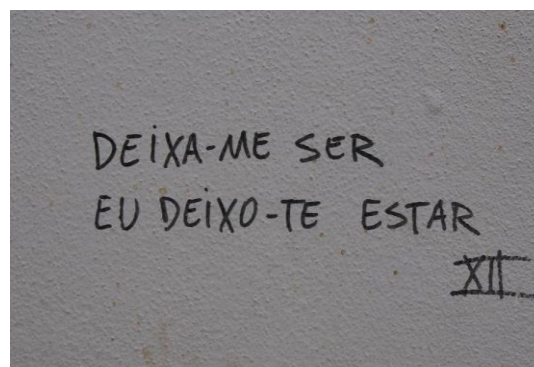 DEIXA-ME SER
EU DEIXO-TE ESTAR
XII